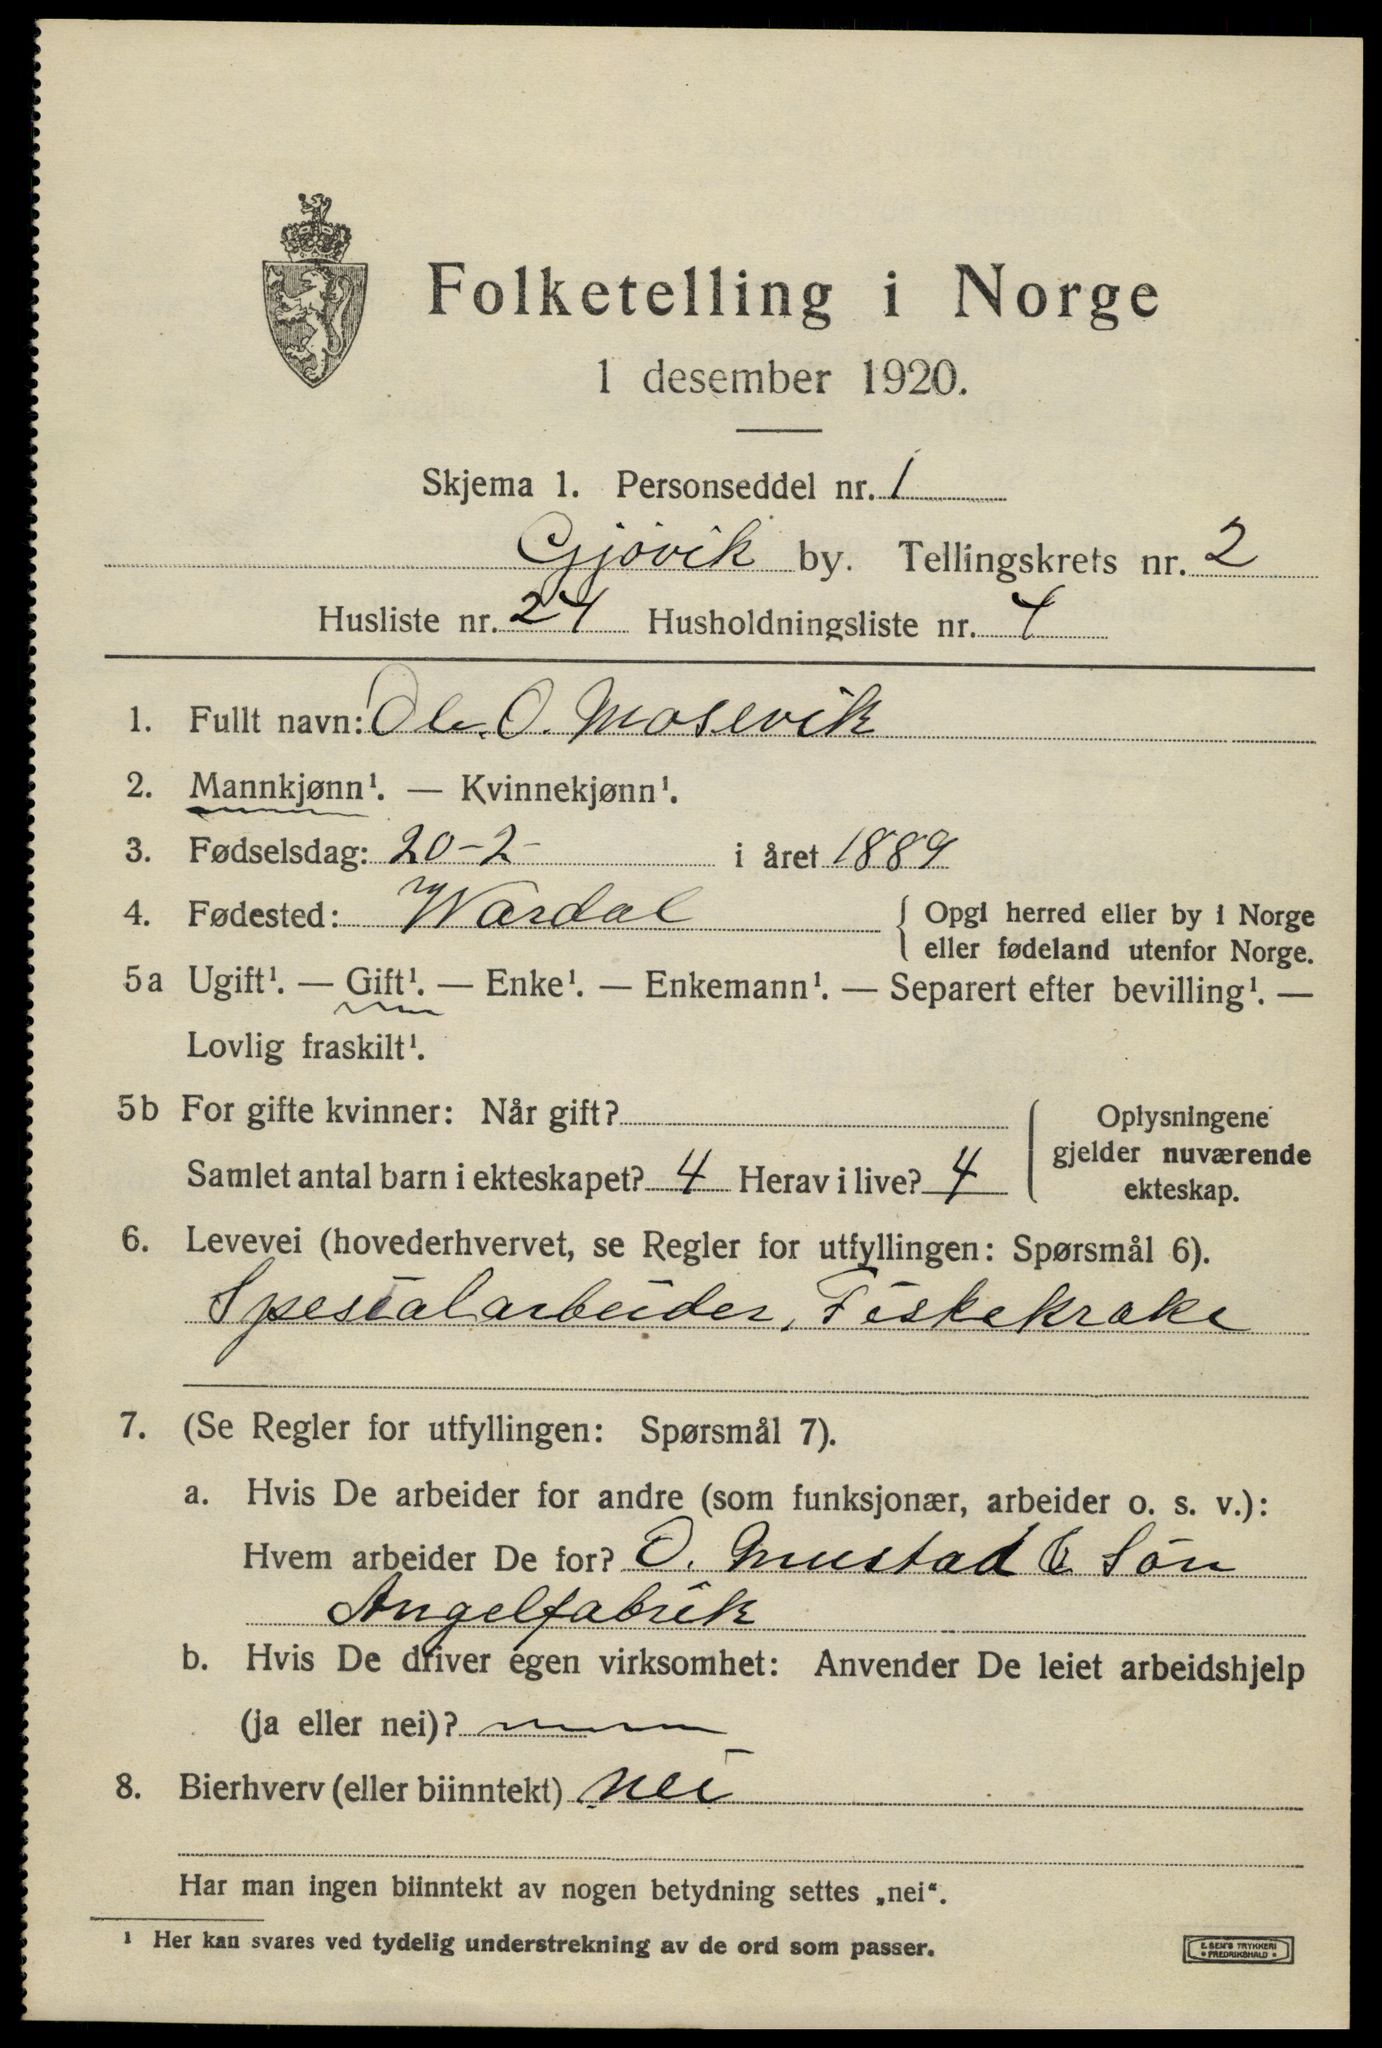 Folketelling i Norge
1 desember 1920.
Skjema 1. Personseddel nr. 1
Gjøvik by. Tellingskrets nr. 2
Husliste nr. 24 Husholdningsliste nr. 4
1. Fullt navn: Ole. O. Mosevik
2. Mannkjønn¹. — Kvinnekjønn¹.
3. Fødselsdag: 20-2- i året 1889
4. Fødested: Wardal { Opgi herred eller by i Norge
eller fødeland utenfor Norge.
5a Ugift¹. — Gift¹. — Enke¹. — Enkemann¹. — Separert efter bevilling¹. —
Lovlig fraskilt¹.
5b For gifte kvinner: Når gift?
Samlet antal barn i ekteskapet? 4 Herav i live? 4
Oplysningene
gjelder nuværende
ekteskap.
6. Levevei (hovederhvervet, se Regler for utfyllingen: Spørsmål 6).
Spesialarbeider, Fiskekroke
7. (Se Regler for utfyllingen: Spørsmål 7).
a. Hvis De arbeider for andre (som funksjonær, arbeider o. s. v.):
Hvem arbeider De for? O. Mustad & Søn
Angelfabrik
b. Hvis De driver egen virksomhet: Anvender De leiet arbeidshjelp
(ja eller nei)?
8. Bierhverv (eller biinntekt) nei
Har man ingen biinntekt av nogen betydning settes „nei“.
¹ Her kan svares ved tydelig understrekning av de ord som passer.
E. SEM'S TRYKKERI
• FREDRIKSHALD •